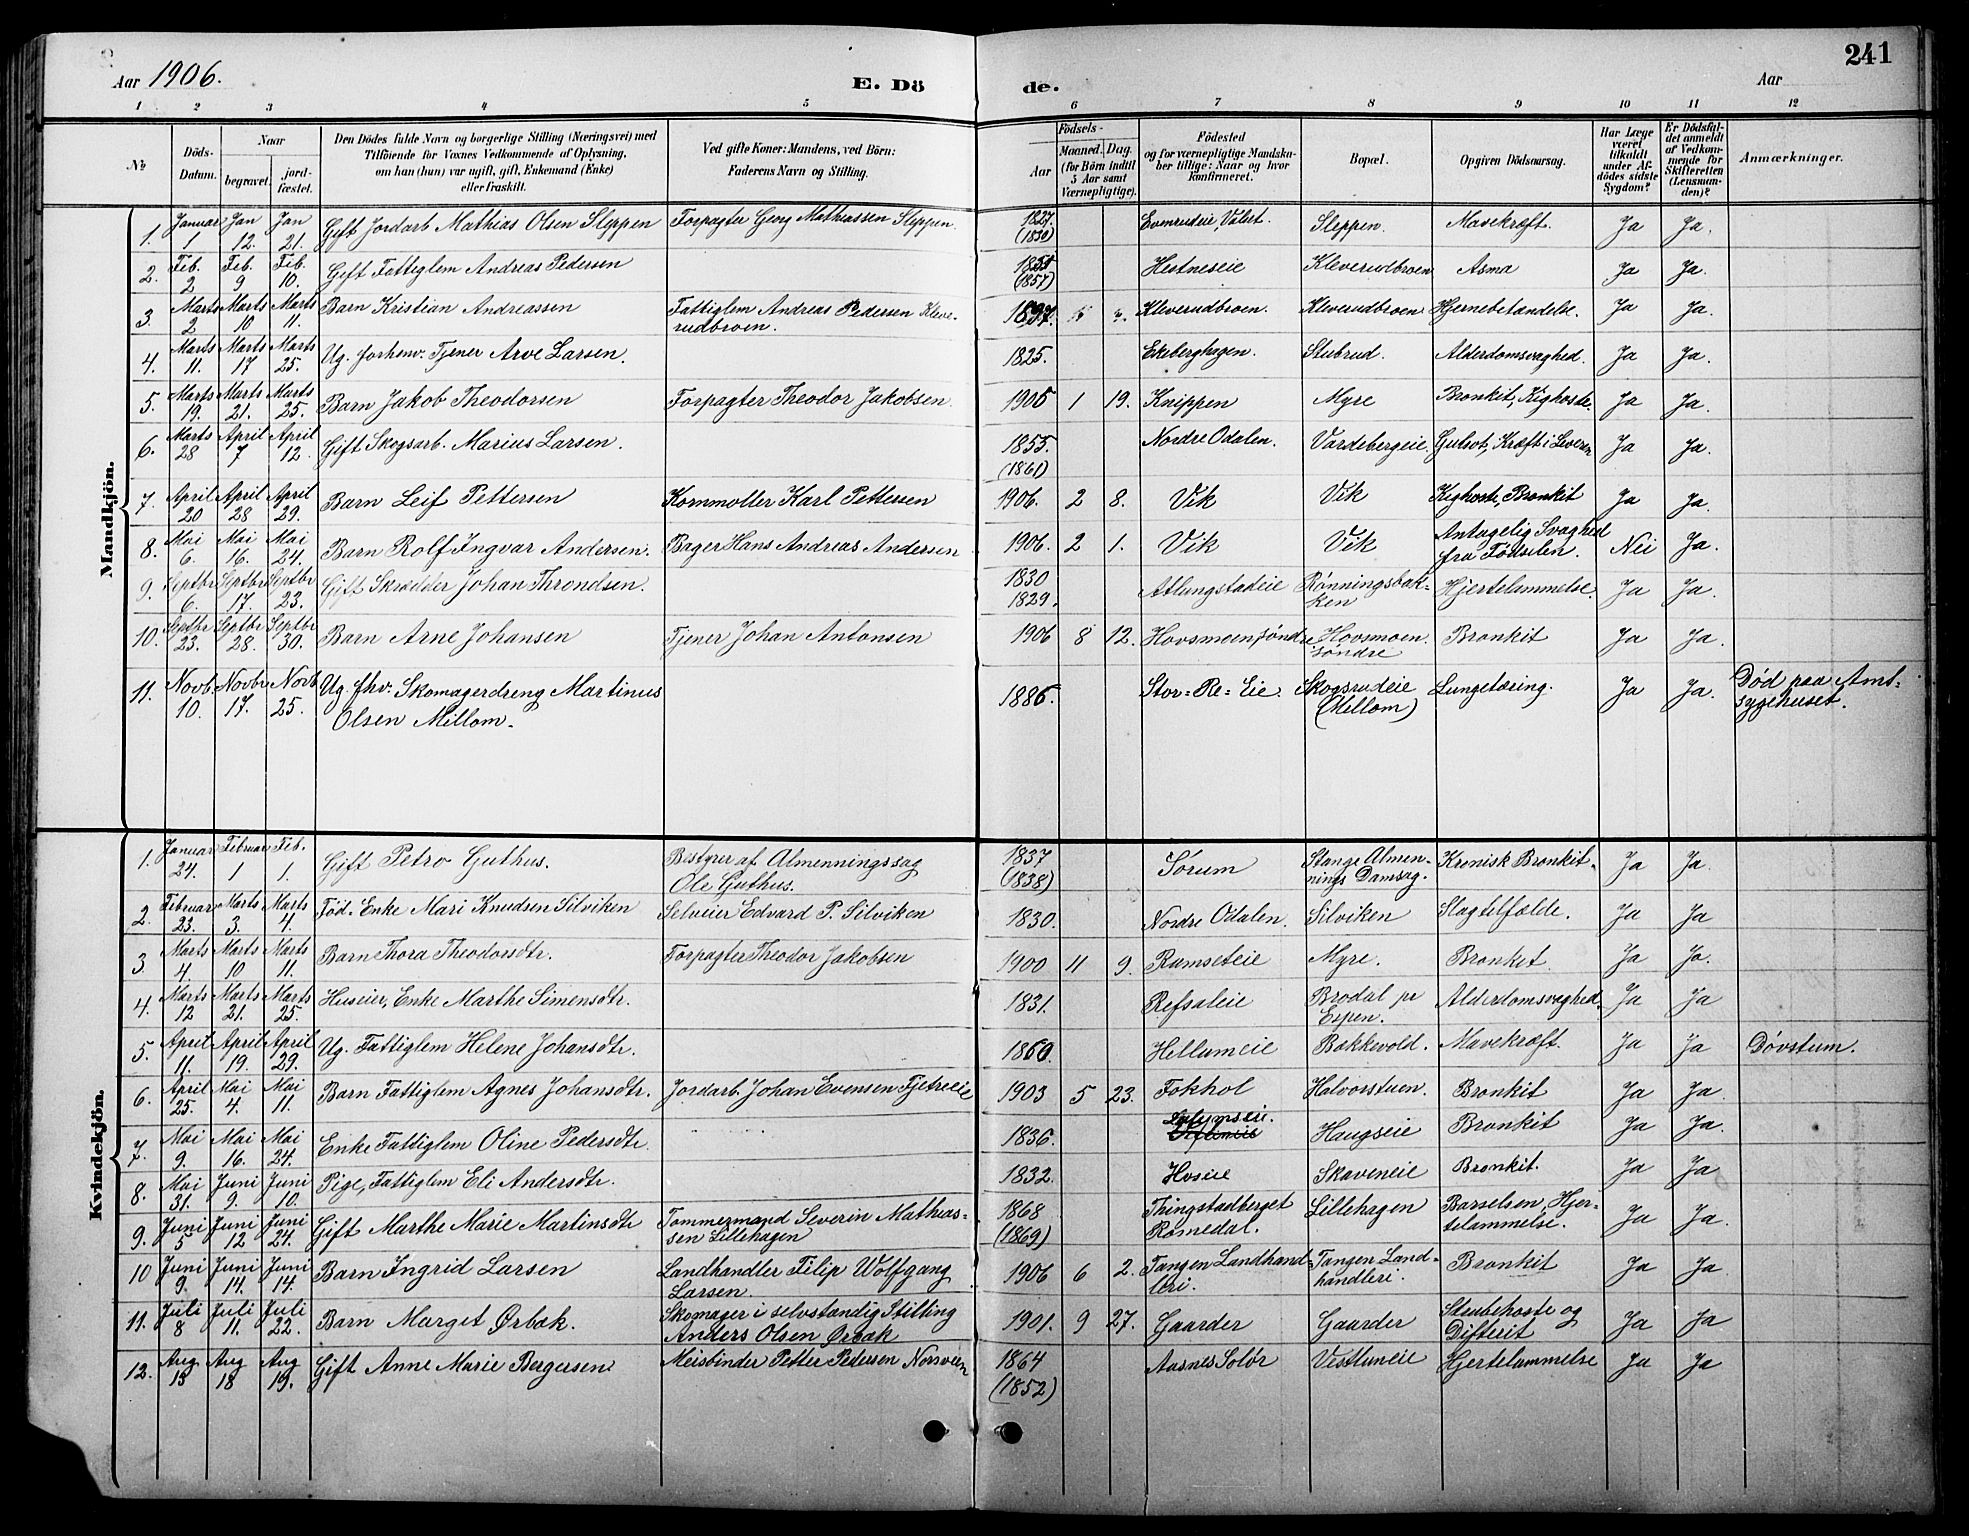 241
Aar 1906.
E. Dö
de.
Aar
1 2 3 4 5 6 7 8 9 10 11 12
№
Döds-Datum.
Naar
begravet.
jordfæstet.
Den Dödes fulde Navn og borgerlige Stilling (Næringsvei) med
Tilföiende for Voxnes Vedkommende af Oplysning,
om han (hun) var ugift, gift, Enkemand (Enke)
eller fraskilt.
Ved gifte Koner: Mandens, ved Börn:
Faderens Navn og Stilling.
Födsels-
Aar
Maaned. Dag.
(for Börn indtil
5 Aar samt
Værnepligtige).
Födested
og for værnepligtige Mandska-
ber tillige: Naar og hvor
konfirmeret.
Bopæl.
Opgiven Dödsaarsag.
Har Læge
været
tilkaldt
under Af-
dödes sidste
Sygdom?
Er Dödsfal-
det anmeldt
af Vedkom-
mende for
Skifteretten
(Lensman-
den)?
Anmærkninger.
Mandkjön.
1. Januar 1 Jan 12. Jan 21. Gift Jordarb Mathias Olsen Sleppen Forpagter Georg Mathiassen Sleppen. 1827. (1830) Evenrudeie, Valset. Sleppen. Mavekræft. Ja Ja.
2. Feb. 2 Feb. 9 Feb. 10. Gift Fattiglem Andreas Pedersen (1857) Hestneseie Kleverudbroen Asma Ja Ja.
3. Marts 2 Marts 10 Marts 11. Barn Kristian Andreassen Fattiglem Andreas Pedersen Kleve-
rudbroen. 1897. Kleverudbroen. Kleverudbroen Hjernebetændelse. Ja Ja.
4. Marts 11. Marts 17 Marts 25. Ug. forhenv. Tjener Arve Larsen. 1825. Ekeberghagen. Stubrud. Alderdomsvaghed. Ja Ja.
5. Marts 19. Marts 21. Marts 25. Barn Jakob Theodorsen Forpagter Theodor Jakobsen. 1905 1 19. Knippen Myre Bronkit, Kighoste. Ja Ja.
6. Marts 28 April 7 April 12. Gift Skogsarb. Marius Larsen. 1855. (1861) Nordre Odalen. Vardebergeie. Gulsot, Kræft i Leveren Ja Ja.
7. April 20 April 28 April 29. Barn Leif Pettersen Kornmotter Karl Pettersen 1906. 2 8. Vik Vik Kighoste, Bronkit Ja Ja.
8. Mai 6. Mai 16. Mai 24. Barn Rolf Ingvar Andersen. Bager Hans Andreas Andersen 1906. 2 1. Vik Vik Antagelig Svaghed
fra Fødselen. Nei Ja.
9. Septbr 6. Septbr 17. Septbr 23. Gift Skrædder Johan Throndsen. 1830 1829. Atlungstadeie Rønningsbak-
ken Hjertelammelse. Ja Ja.
10. Septbr 23. Septbr 28. Septbr 30. Barn Arne Johansen Tjener Johan Antonsen 1906 8 12. Hovsmoen søndre Hovsmoen
søndre Bronkit Ja Ja.
11. Novb. 10. Novbr 17. Novb 25. Ug. fhv. Skomagerdreng Martinus
Olsen Millom. 1886. Stor=Re=Eie. Skogsrudeie
(Millom) Lungetæring. Ja Ja. Død paa Amt-
sygehuset.
Kvindekjön.
1. Januar 24. Februar 1 Feb. 1. Gift Petro Guthus. Bestyrer af Almenningssag
Ole Guthus. 1837 (1838) Sørum Stange Almen-
nings Damsag. Kronisk Bronkit. Ja Ja.
2. Februar 23. Marts 3. Marts 4. Fød. Enke Mari Knudsen Silviken Selveier Edvard P. Silviken 1830. Nordre Odalen. Silviken Slagtilfælde. Ja Ja
3. Marts 4. Marts 10 Marts 11. Barn Thora Theodorsdtr. Forpagter Theodor Jakobsen 1900 11 9. Ramseteie Myre. Bronkit. Ja Ja.
4. Marts 12 Marts 21. Marts 25. Huseier, Enke Marthe Simensdtr. 1831. Refsaleie Brodal pr
Espen. Alderdomsvaghed. Ja Ja
5. April 11. April 19. April 29. Ug. Fattiglem Helene Johansdtr. 1860. Hellumeie Bakkevold. Mavekræft. Ja Ja Døvstum.
6. April 25. Mai 4. Mai 11. Barn Fattiglem Agnes Johansdtr. Jordarb. Johan Evensen Tjetreeie 1903 5 23. Fokhol Halvorstuen. Bronkit Ja Ja.
7. Mai 9. Mai 16. Mai 24. Enke Fattiglem Oline Pedersdtr. 1836. Haugseie Bronkit Ja Ja.
8. Mai 31. Juni 9. Juni 10. Pige, Fattiglem Eli Andersdtr. 1832. Hoseie Skaveneie Bronkit. Ja Ja
9. Juni 5 Juni 12 Juni 24. Gift Marthe Marie Martinsdtr Tømmermand Severin Mathias-
sen Lillehagen 1868 (1869) Thingstadberget
Romedal. Lillehagen Barselsen, Hjer-
telammelse. Ja Ja.
10 Juni 9. Juni 14. Juni 14. Barn Ingrid Larsen Landhandler Filip Wolfgang
Larsen. 1906 6 2. Tangen Landhand-
leri. Tangen Land-
handleri. Bronkit Ja Ja
11. Juli 8 Juli 11. Juli 22. Barn Margit Ørbæk. Skomager i selvstændig Stilling
Anders Olsen Ørbæk 1901. 9 27. Gaarder Gaarder Strubehoste og
Difterit Ja Ja
12. Aug 13 Aug 18 Aug 19. Gift Anne Marie Bergersen Meisbinder Petter Pedersen Norsveen 1864 (1852) Aasnes Solør Vestluneie Hjertelammelse Ja Ja